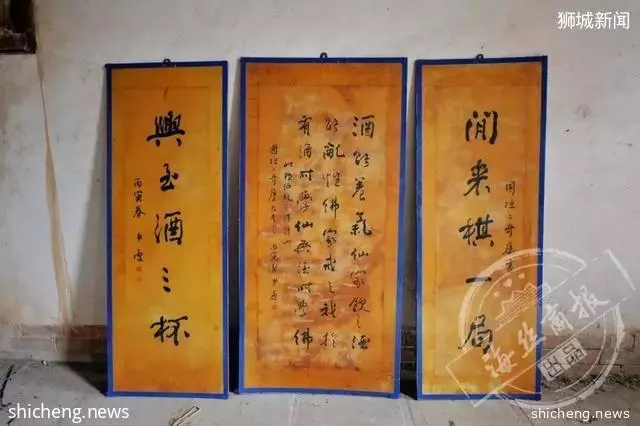 狮城新闻
闲来棋一局
酒能養氣仙家飲之酒
能亂性佛家戒之我於
有酒时學仙無酒时學佛
興至酒三杯
丙寅春
海丝商报
出品
shicheng.news
shicheng.news